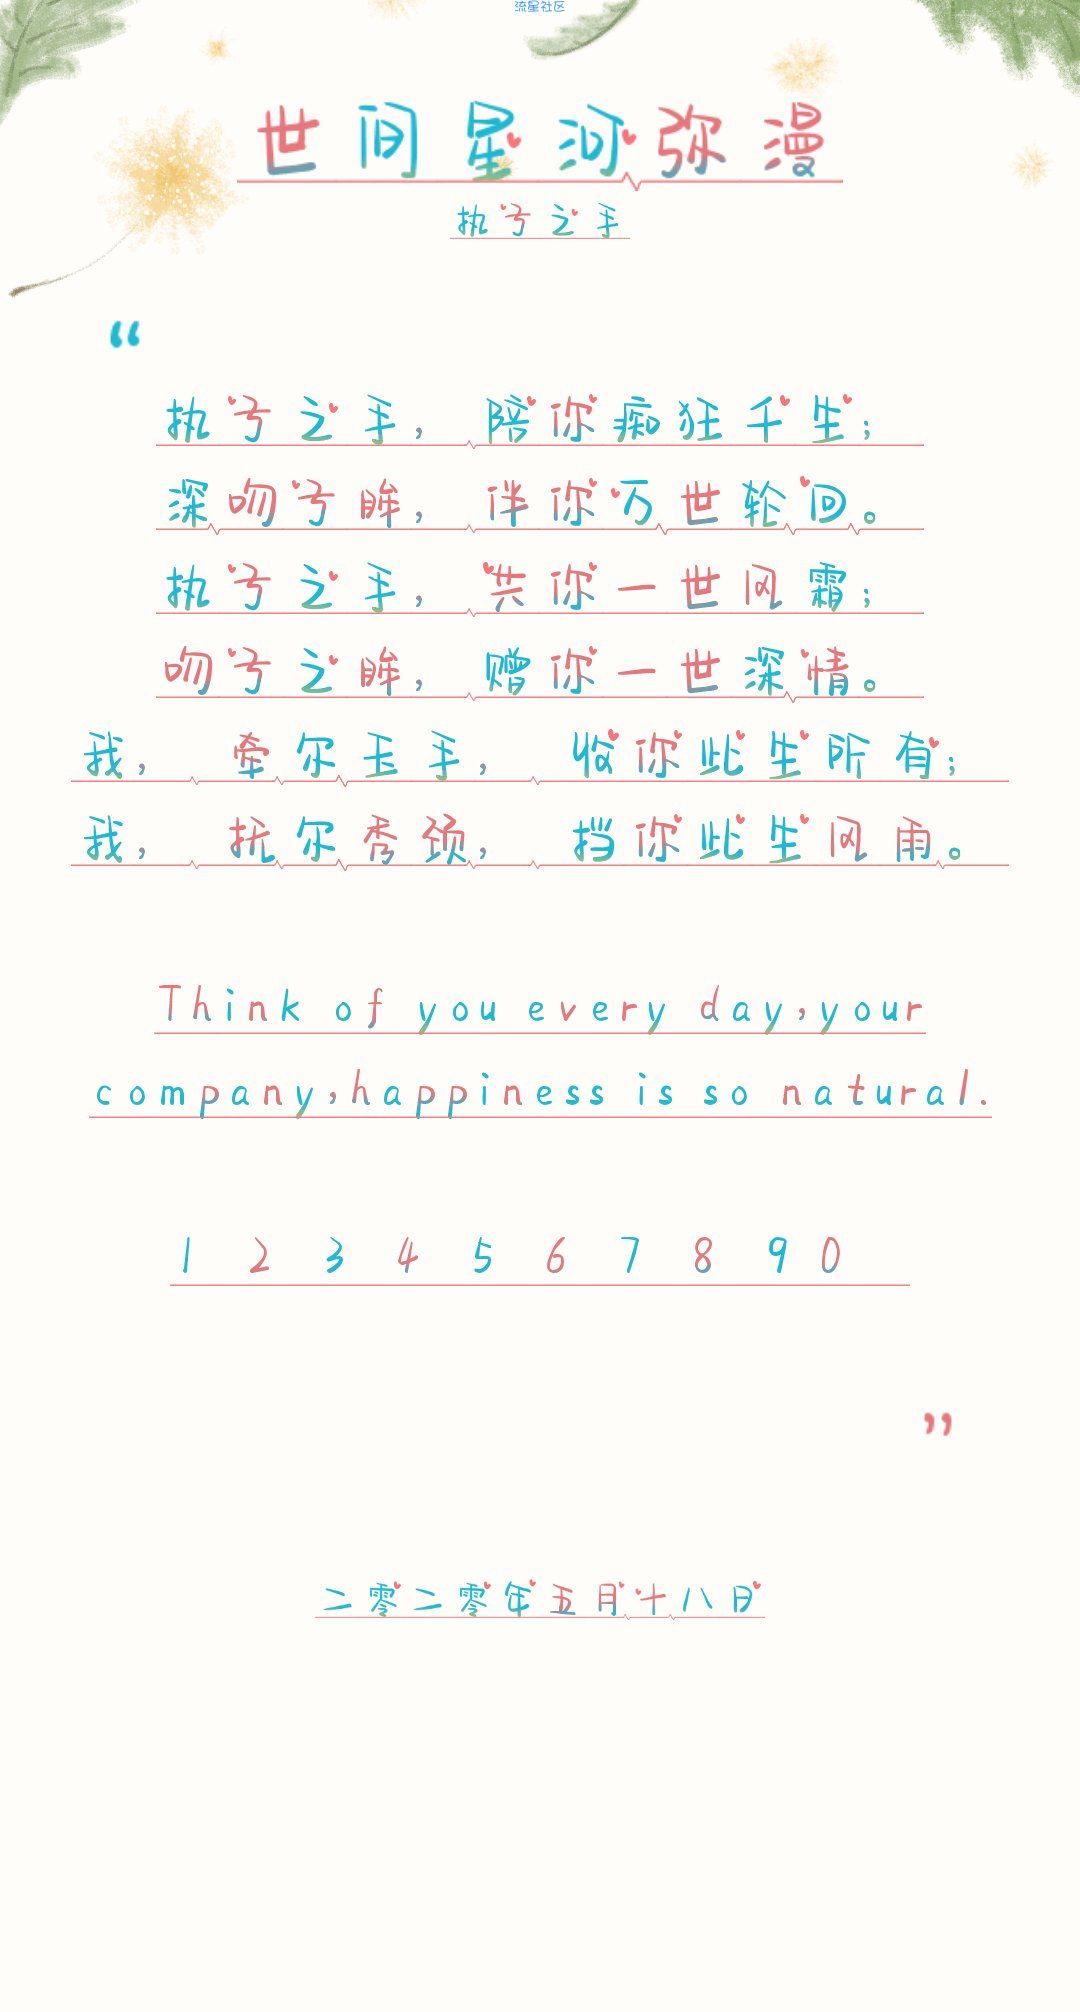 流星社区
世间星河弥漫
执子之手
“
执子之手，陪你痴狂千生；
深吻子眸，伴你万世轮回。
执子之手，共你一世风霜；
吻子之眸，赠你一世深情。
我，牵尔玉手，收你此生所有；
我，抚尔秀颈，挡你此生风雨。
Think of you every day,your
company,happiness is so natural.
1 2 3 4 5 6 7 8 9 0
”
二零二零年五月十八日